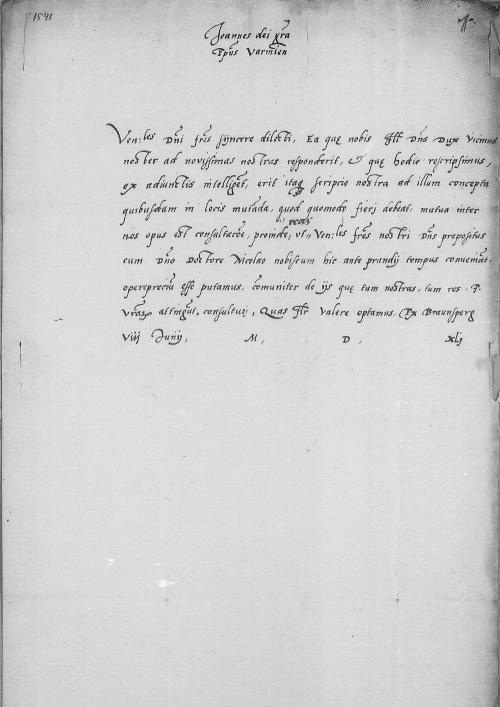 1541
Joannes dei gra
Epus Varmien
Ven:les Dni frs syncere dilecti, Ea quę nobis Ill Dns Dux Vicinus
noster ad novissimas nostras responderit, & quę hodie rescripsimus,
ex adiunctis intelliget, erit itaq scriptio nostra ad illum concepta
quibusdam in locis mutada, quod quomodo fierj debeat, mutua inter
nos opus est consultacoe, proinde, vt Ven:les fres nostri Dns propositus
cum Dno Doctore Nicolao nobiscum hic ante prandij tempus conveniat,
operepreciu esse putamus, comuniter de ijs quę tum nostras, tum res
vras attingut, consulturj, Quas valere optamus, Ex Braunsperg
Viij Junij, M, D, xlj